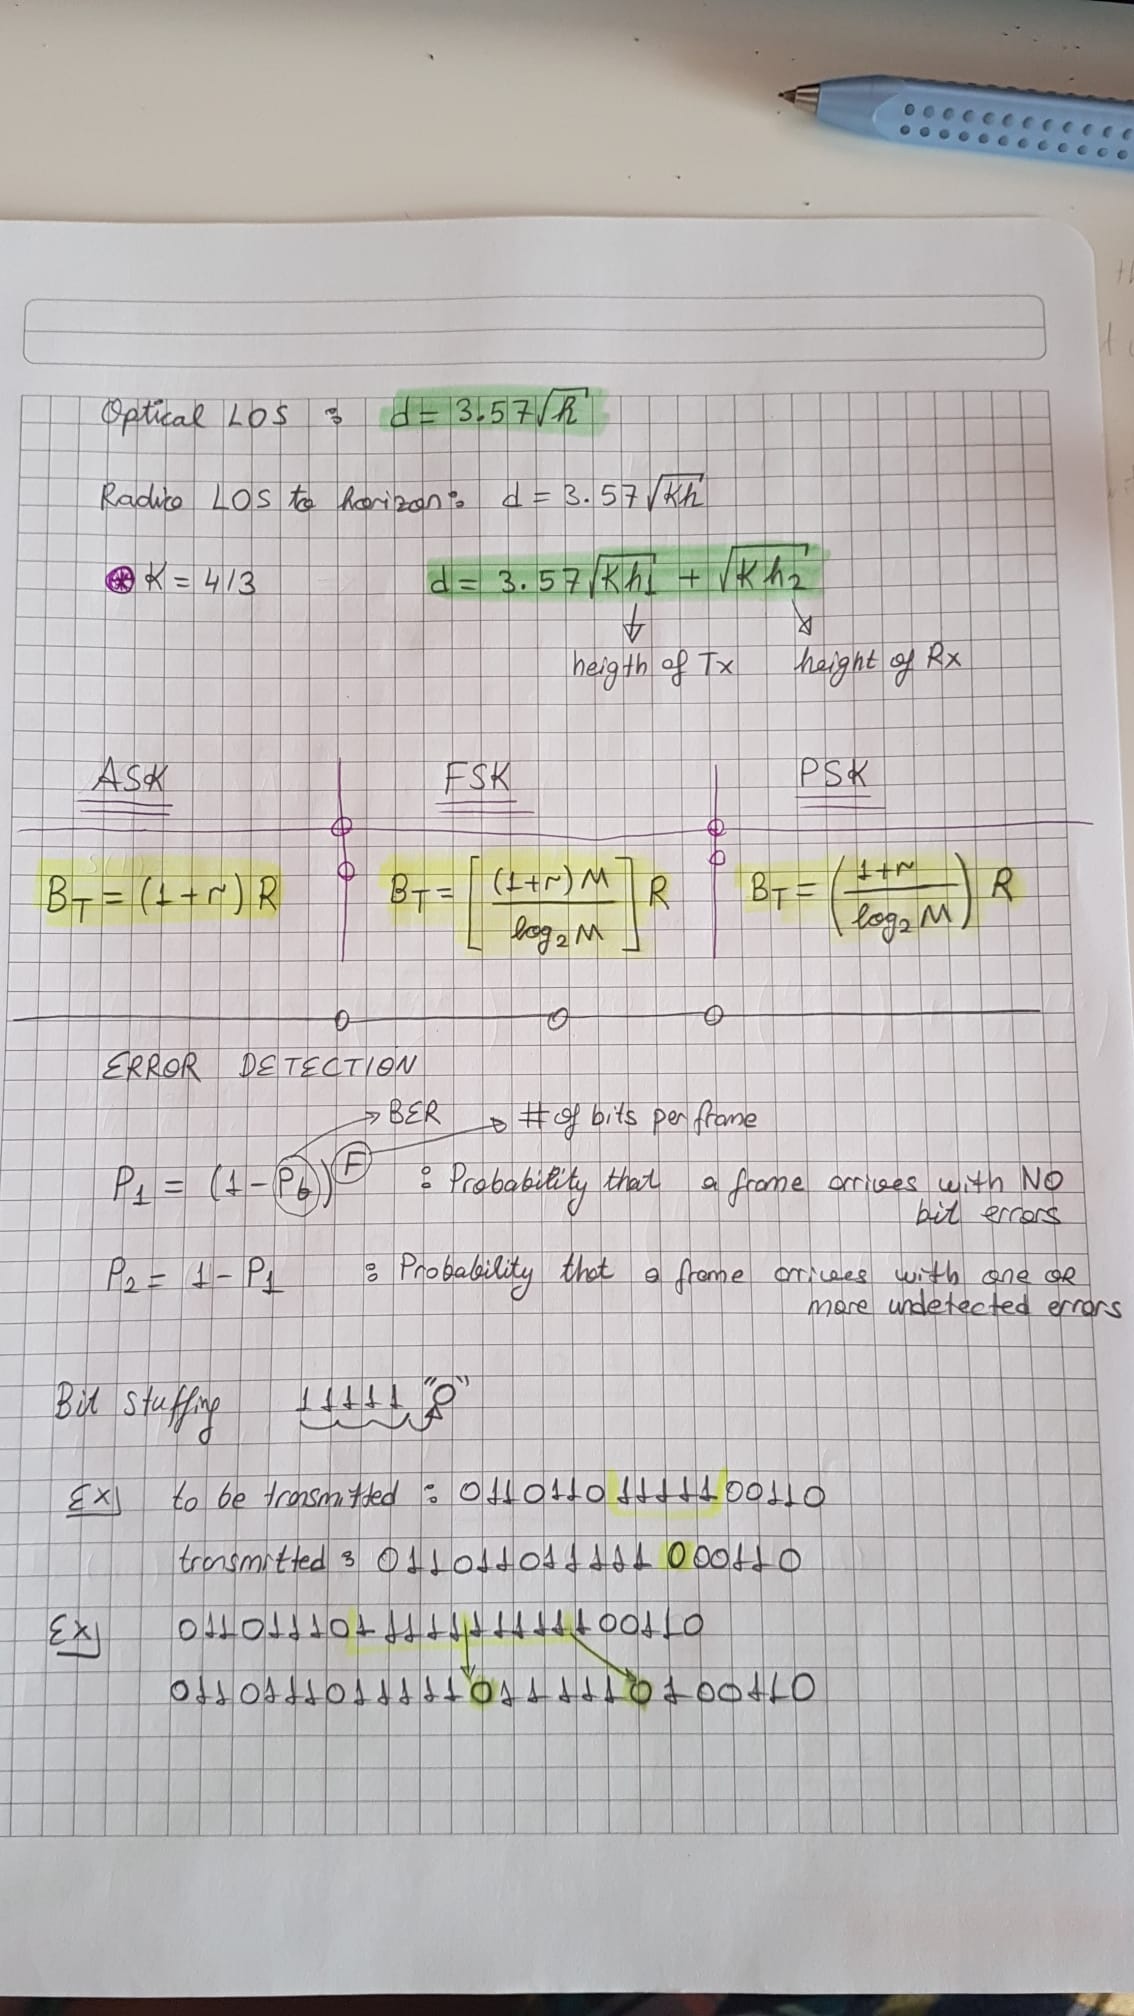 Optical LOS : d = 3.57√h
Radio LOS to horizon: d = 3.57√Kh
⊛ K = 4/3 d = 3.57√Kh1 + √Kh2
heigth of Tx height of Rx
ASK FSK PSK
B_T = (1+r) R B_T = [(1+r)M / log2 M] R B_T = (1+r / log2 M) R
ERROR DETECTION
→ BER → # of bits per frame
P1 = (1-Pb)^F : Probability that a frame arrives with NO
bit errors
P2 = 1 - P1 : Probability that a frame arrives with one OR
more undetected errors
Bit stuffing 11111 "0"
Ex) to be transmitted : 0110110111110 0110
transmitted : 011011011111000110
Ex) 011011101111111111100110
01101110111110111111010 0110